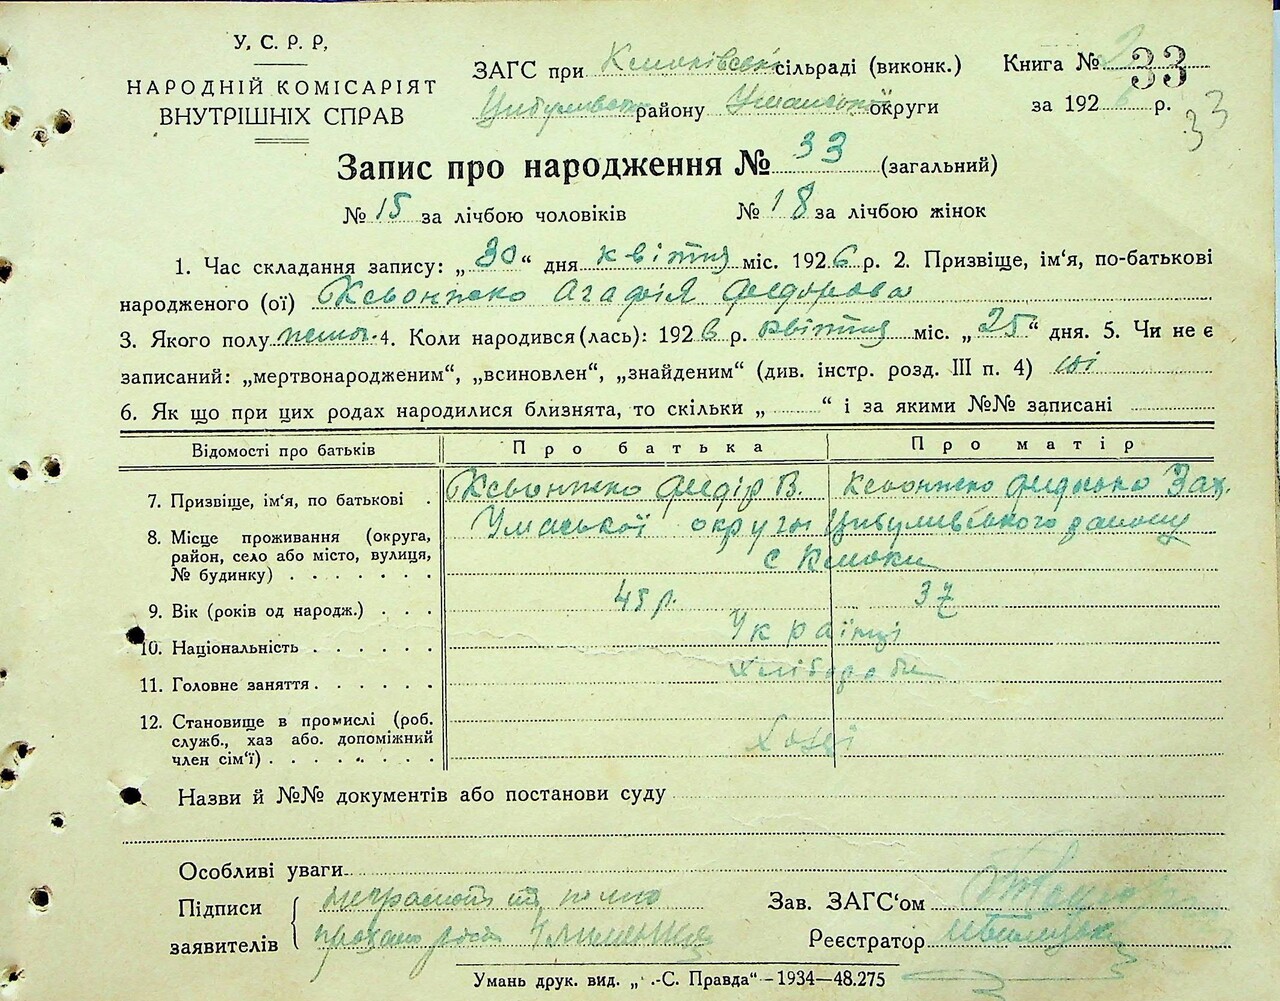 У. С. Р. Р.
НАРОДНІЙ КОМІСАРІЯТ
ВНУТРІШНІХ СПРАВ
ЗАГС при сільраді (виконк.)
району округи
Книга № 2 33
за 1926 р.
33
Запис про народження № 33 (загальний)
№ 15 за лічбою чоловіків № 18 за лічбою жінок
1. Час складання запису: „30“ дня квітня міс. 1926 р. 2. Призвіще, ім‘я, по-батькові
народженого (ої) Агафія Федорова
3. Якого полу 4. Коли народився (лась): 1926 р. квітня міс. „25“ дня. 5. Чи не є
записаний: „мертвонародженим“, „всиновлен“, „знайденим“ (див. інстр. розд. III п. 4) ні
6. Як що при цих родах народилися близнята, то скільки „ “ і за якими №№ записані
Відомості про батьків Про батька Про матір
7. Призвіще, ім‘я, по батькові Федір В. Зах.
8. Місце проживання (округа, район, село або місто, вулиця, № будинку) округи Цибулівського району
с
9. Вік (років од народж.) 45 р. 37
10. Національність Українці
11. Головне заняття Хлібороби
12. Становище в промислі (роб. служб., хаз або. допоміжний член сім‘ї)
Назви й №№ документів або постанови суду
Особливі уваги
Підписи
заявителів
Зав. ЗАГС‘ом
Реєстратор
Умань друк. вид. „ -С. Правда“ - 1934—48.275